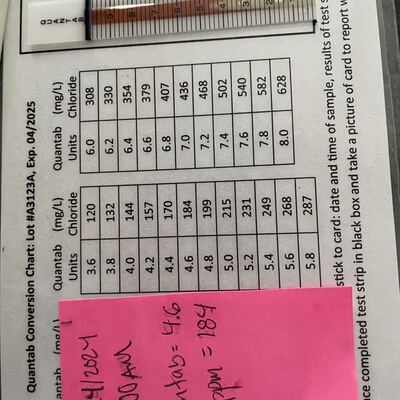 Quantab Conversion Chart: Lot #A3123A, Exp. 04/2025
Quantab (mg/L) Quantab (mg/L)
Units Chloride Units Chloride
3.6 120 6.0 308
3.8 132 6.2 330
4.0 144 6.4 354
4.2 157 6.6 379
4.4 170 6.8 407
4.6 184 7.0 436
4.8 199 7.2 468
5.0 215 7.4 502
5.2 231 7.6 540
5.4 249 7.8 582
5.6 268 8.0 628
5.8 287
QUANTAB
9
8
7
6
5
4
3
2
1
4/2024
00 AM
ntab = 4.6
ppm = 184
stick to card: date and time of sample, results of test s
nce completed test strip in black box and take a picture of card to report w